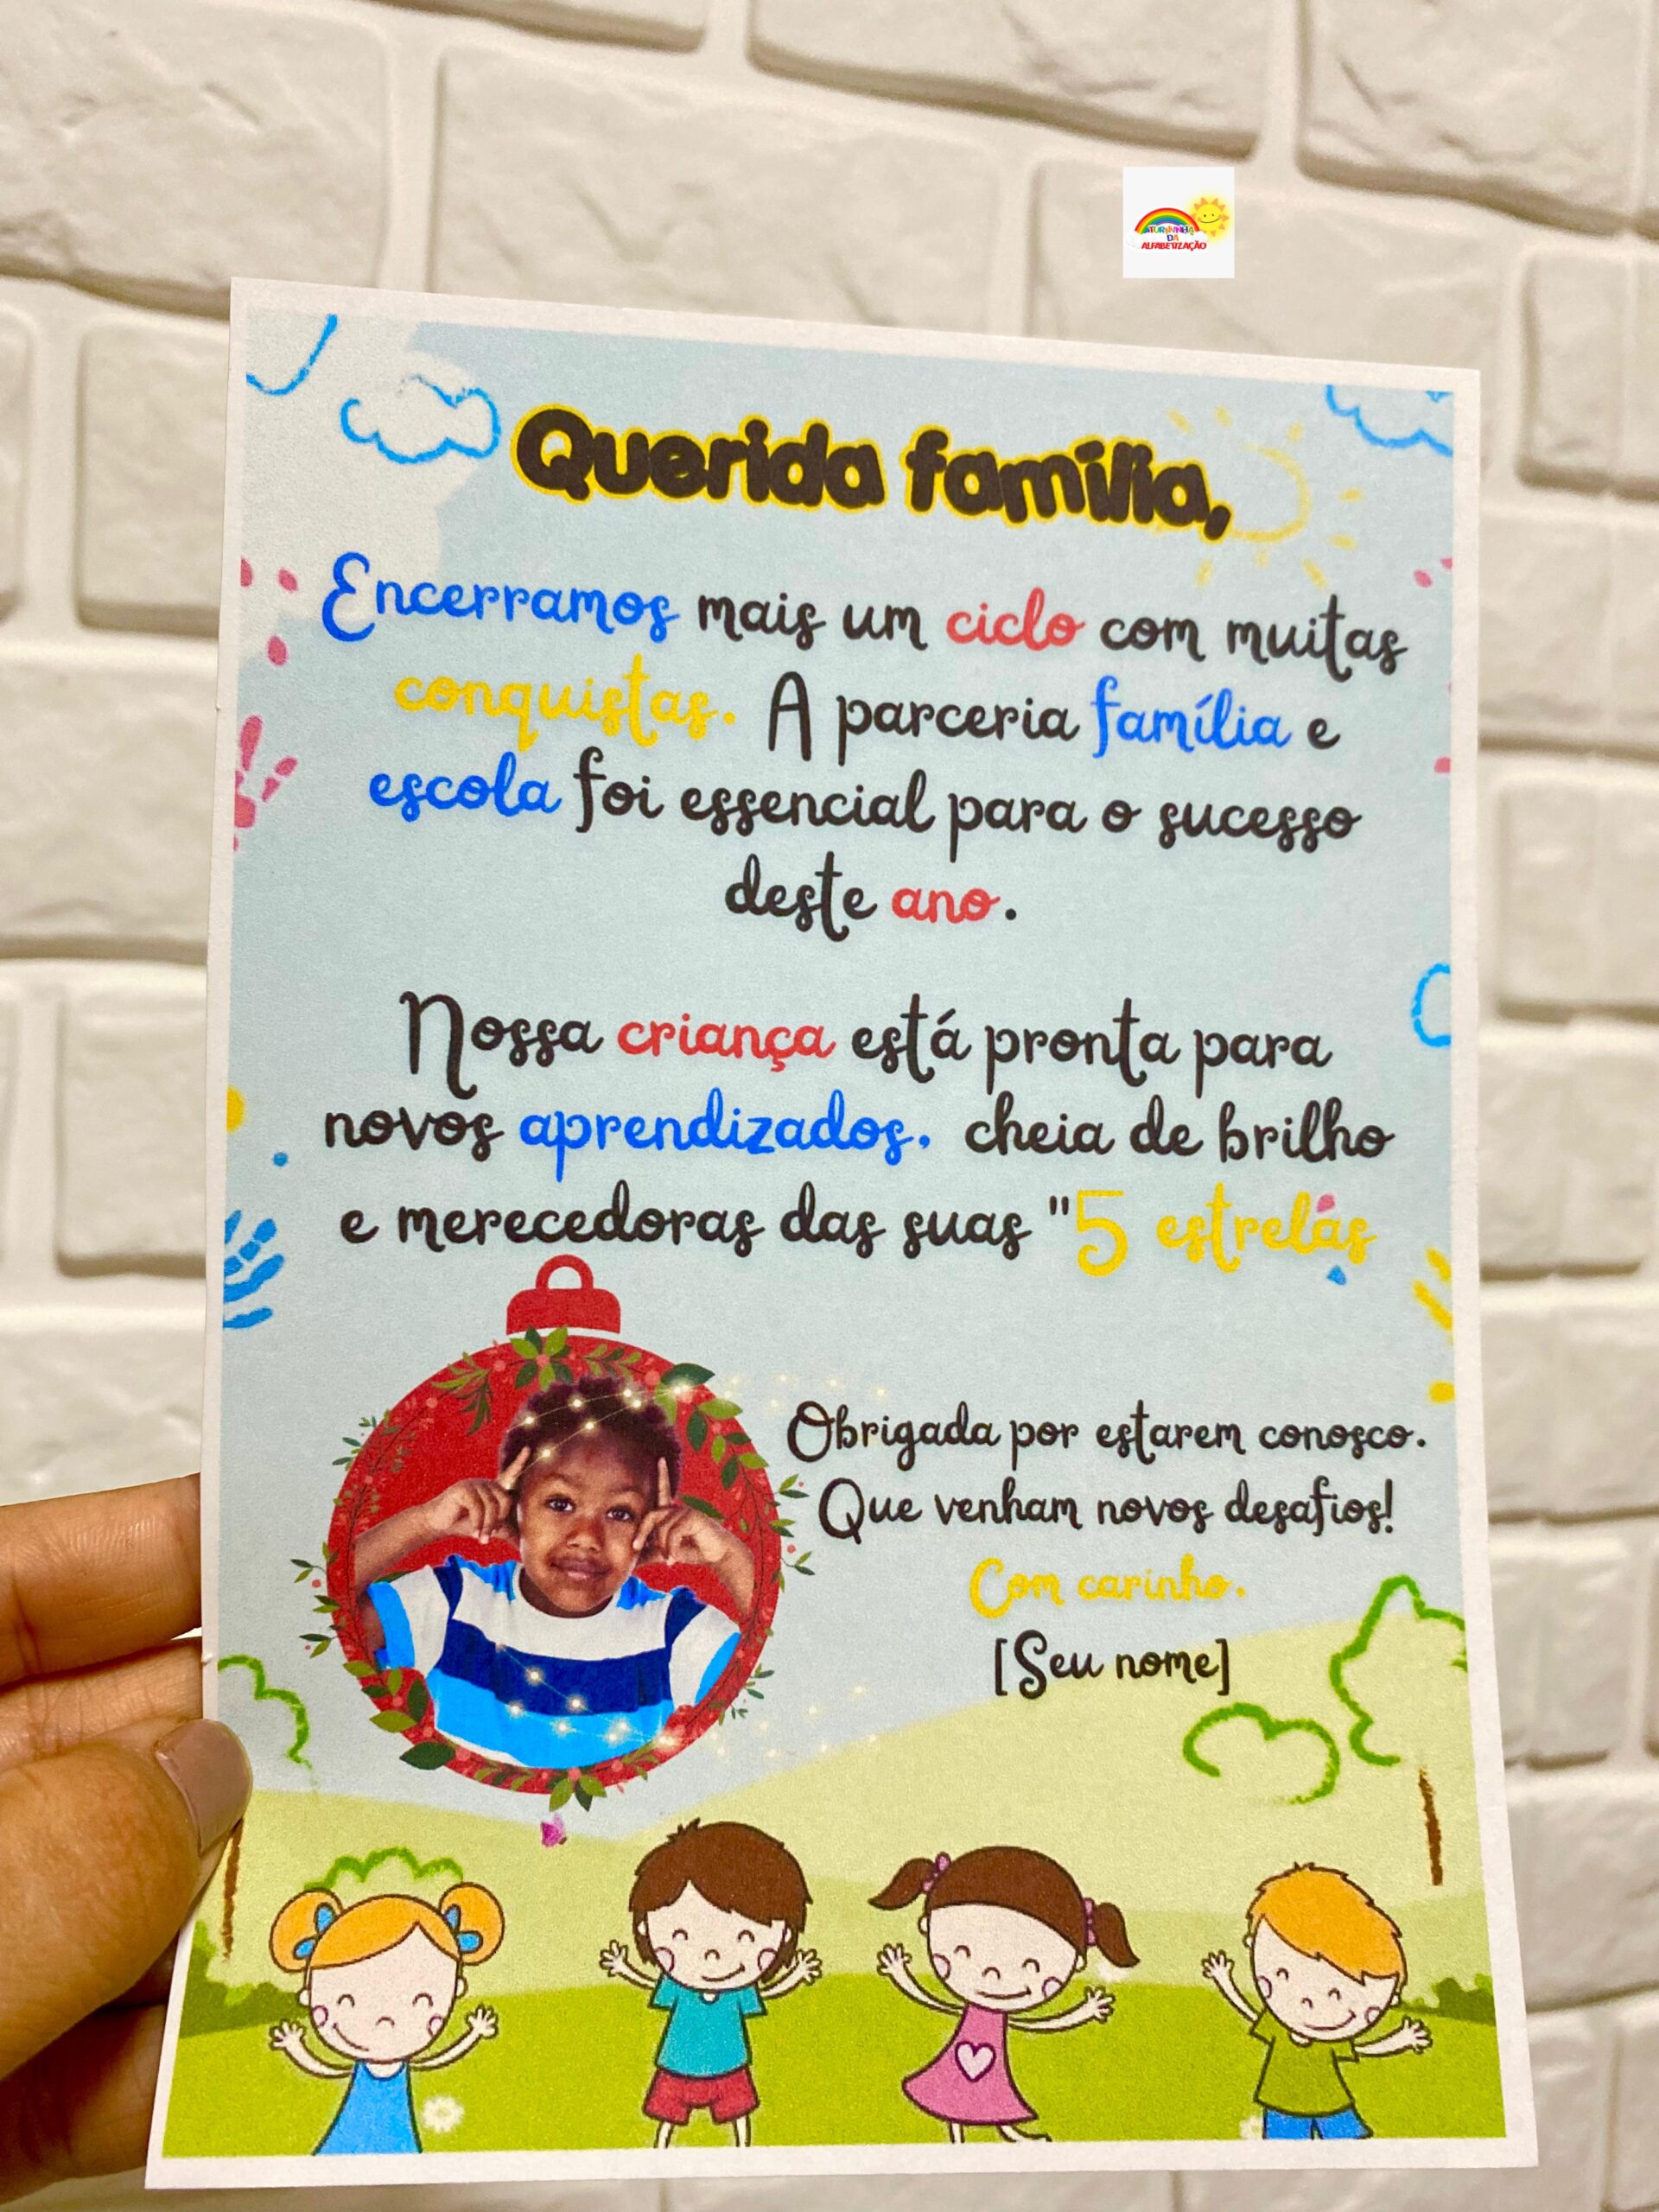 TURMINHA
DA
ALFABETIZAÇÃO
Querida família,
Encerramos mais um ciclo com muitas
conquistas. A parceria família e
escola foi essencial para o sucesso
deste ano.
Nossa criança está pronta para
novos aprendizados, cheia de brilho
e merecedoras das suas "5 estrelas
Obrigada por estarem conosco.
Que venham novos desafios!
Com carinho,
[Seu nome]